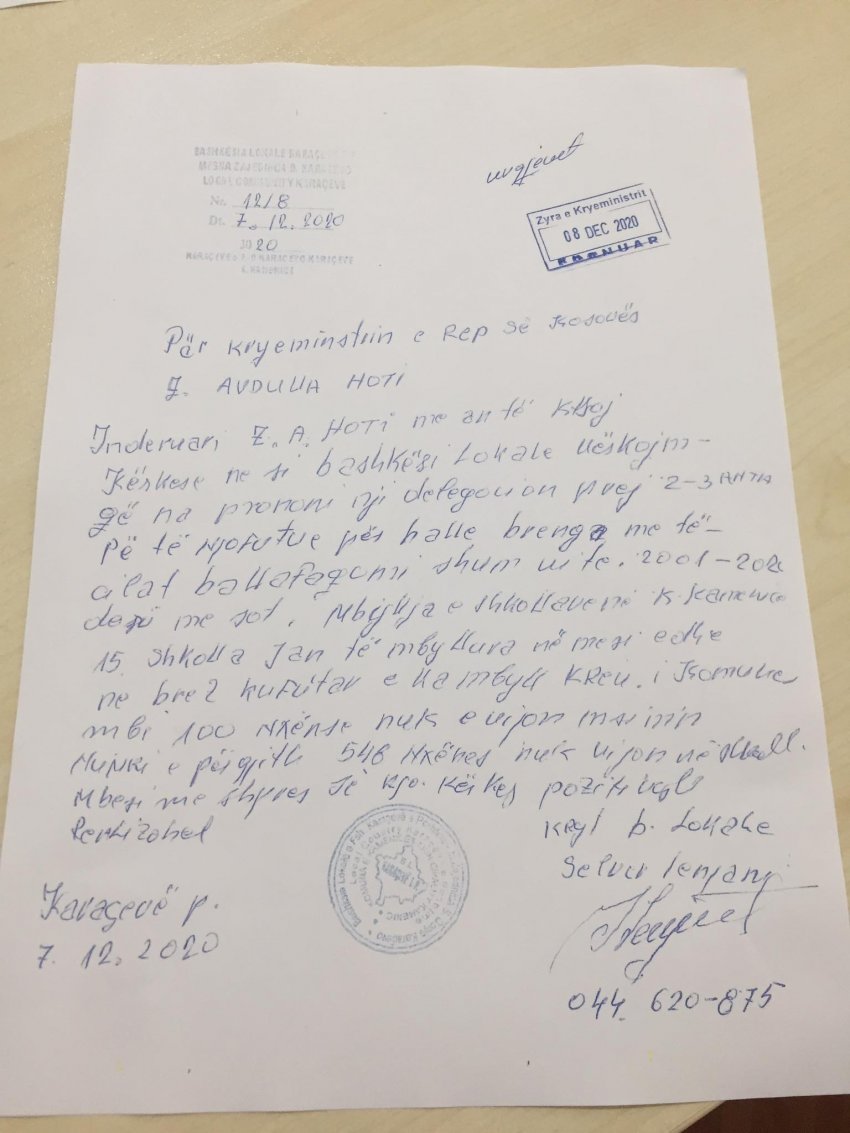 BASHKËSIA LOKALE KARAÇEVË
MESNA ZAJEDNICA D. KARAÇEVO
LOCAL COMMUNITY KARAÇEVË
Nr. 12/8
Dt. 7. 12. 2020
2020
KARAÇEVO KARAÇEVË
K. KAMENICË
urgjenet
Zyra e Kryeministrit
08 DEC 2020
PRANUAR
Për Kryeminstrin e Rep Së Kosovës
Z. AVDULLA HOTI
Inderuari Z. A. HOTI me an të Ksaj
Kërkese ne si bashkësi Lokale
që na pranoni nji delegacion prej 2-3 ANTA
Pë të për halle brenga me të-
cilat ballafaqomi shum vite. 2001-2020
deri me sot. Mbyllja e shkollave në K. Kamenice
15. Shkolla Jan të mbyllura në mesi edhe
ne brez kufitar e ka mbyll Kreu. i Komunes
mbi 100 Nxënse nuk e vijon msimin
Numri e përgjith 546 Nxënes nuk vijon në shkoll.
Mbesi me shpres së kjo. Kërkes pozitivisht
Kryt b. Lokale
Selver
Karaçevë p.
7. 12. 2020
044. 620-875